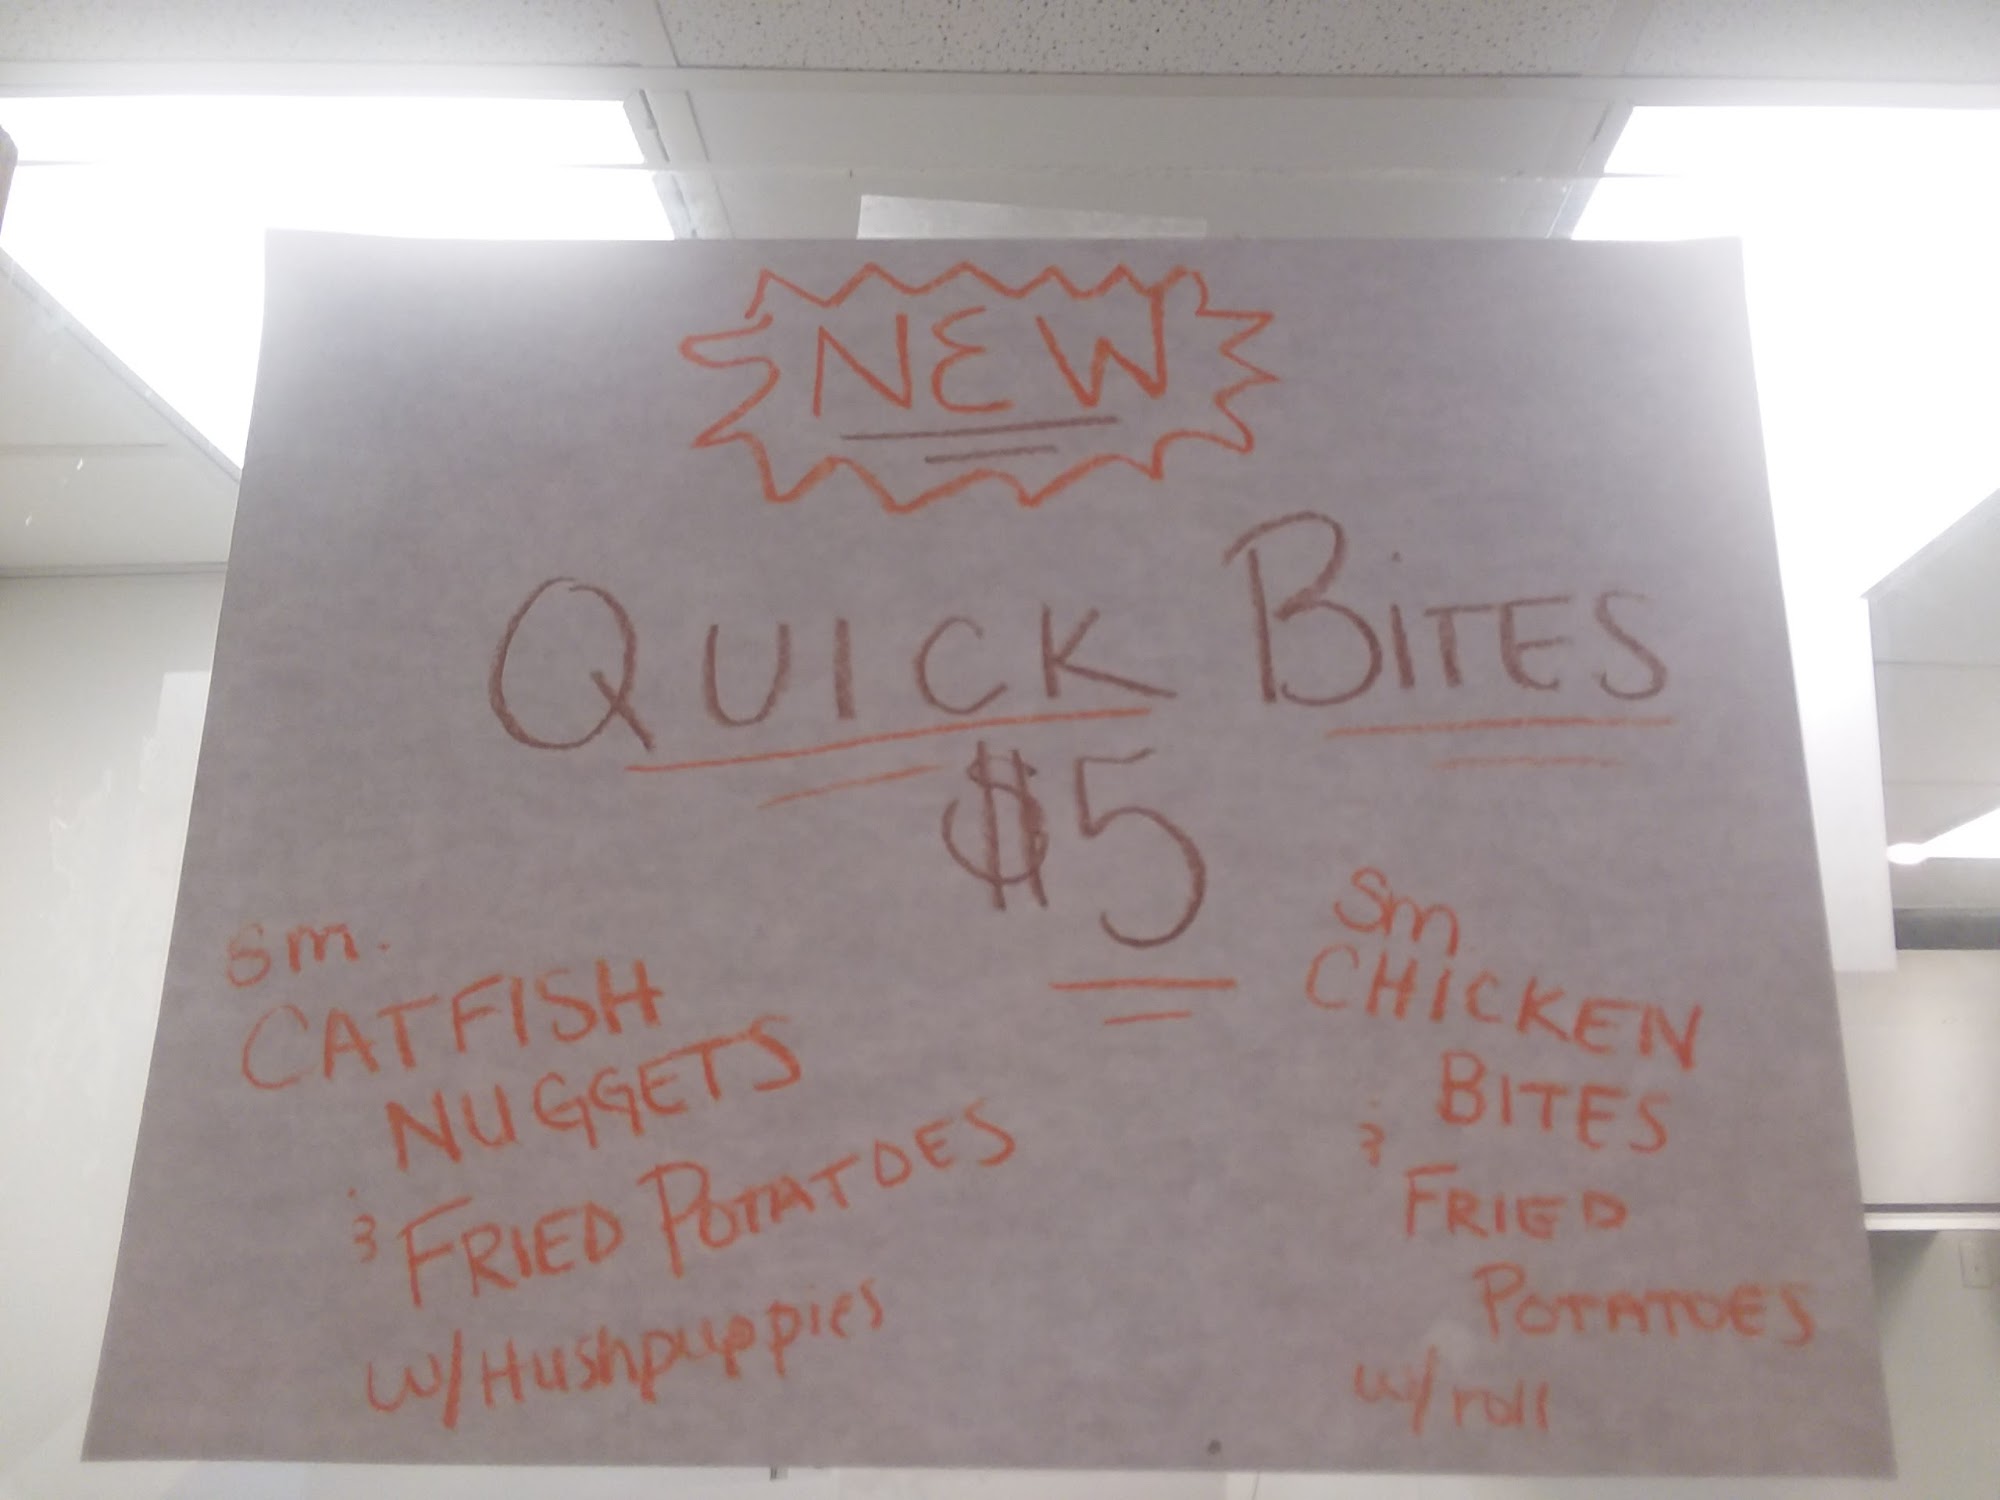 NEW
QUICK BITES
$5
sm.
CATFISH
NUGGETS
& FRIED POTATOES
w/Hushpuppies
Sm
CHICKEN
BITES
&
FRIED
POTATOES
w/roll